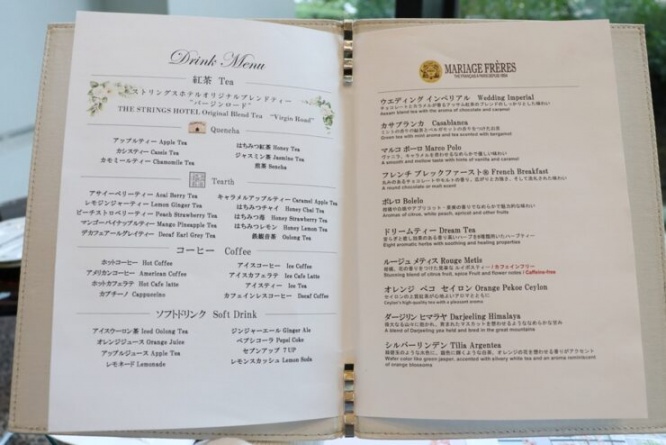 Drink Menu
紅茶 Tea
ストリングスホテルオリジナルブレンドティー
"バージンロード"
THE STRINGS HOTEL Original Blend Tea "Virgin Road"
Quencha
アップルティー Apple Tea
カシスティー Cassis Tea
カモミールティー Chamomile Tea
はちみつ紅茶 Honey Tea
ジャスミン茶 Jasmine Tea
煎茶 Sencha
Tearth
アサイーベリーティー Acai Berry Tea
レモンジンジャーティー Lemon Ginger Tea
ピーチストロベリーティー Peach Strawberry Tea
マンゴーパイナップルティー Mango Pineapple Tea
デカフェアールグレイティー Decaf Earl Gray Tea
キャラメルアップルティー Caramel Apple Tea
はちみつチャイ Honey Chai Tea
はちみつ苺 Honey Strawberry Tea
はちみつレモン Honey Lemon Tea
鉄観音茶 Oolong Tea
コーヒー Coffee
ホットコーヒー Hot Coffee
アメリカンコーヒー American Coffee
ホットカフェラテ Hot Cafe latte
カプチーノ Cappuccino
アイスコーヒー Ice Coffee
アイスカフェラテ Ice Cafe Latte
アイスティー Ice Tea
カフェインレスコーヒー Decaf Coffee
ソフトドリンク Soft Drink
アイスウーロン茶 Iced Oolong Tea
オレンジジュース Orange Juice
アップルジュース Apple Tea
レモネード Lemonade
ジンジャーエール Ginger Ale
ペプシコーラ Pepsi Coke
セブンアップ 7UP
レモンスカッシュ Lemon Soda
MARIAGE FRÈRES
ウエディング インペリアル Wedding Imperial
Assam blended tea with the aroma of chocolate and caramel
カサブランカ Casablanca
Green tea with mint aroma and tea scented with bergamot
マルコ ポーロ Marco Polo
A smooth and mellow taste with hints of vanilla and caramel
フレンチ ブレックファースト® French Breakfast
A round chocolate or malt scent
ボレロ Bolelo
Aromas of citrus, white peach, apricot and other fruits
ドリームティー Dream Tea
Eight aromatic herbs with soothing and healing properties
ルージュ メティス Rouge Metis
Stunning blend of citrus fruit, spice fruit and flower notes / Caffeine-free
オレンジ ペコ セイロン Orange Pekoe Ceylon
Ceylon's high quality tea with a pleasant aroma
ダージリン ヒマラヤ Darjeeling Himalaya
A blend of Darjeeling tea held and bred in the great mountains
シルバーリンデン Tilia Argentea
Water color like green jasper, accented with silvery white tea and an aroma reminiscent
of orange blossoms